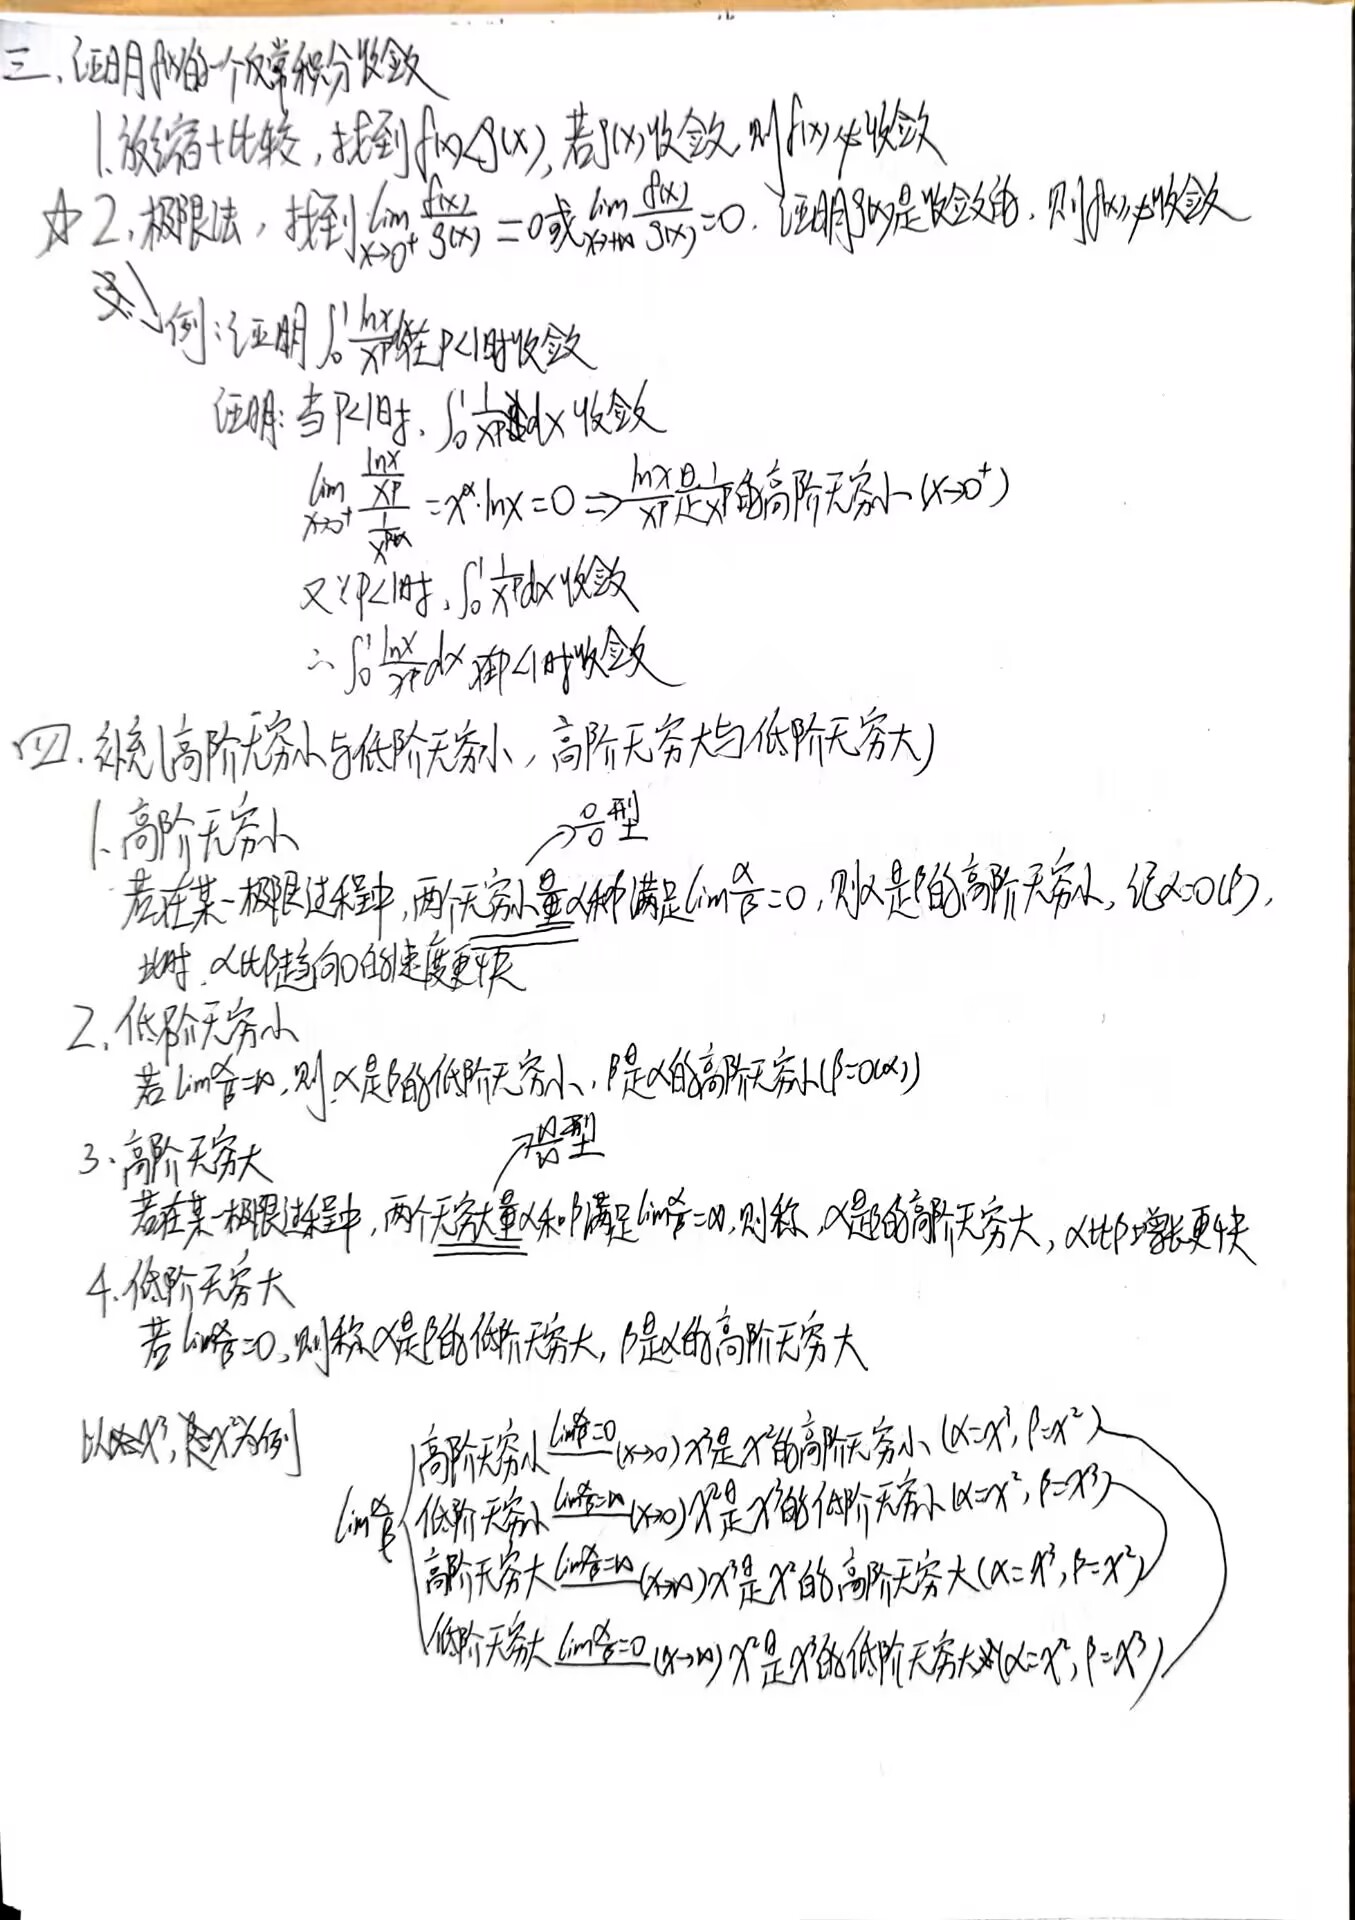 三、证明f(x)的一个反常积分收敛
1.放缩+比较，找到f(x)<g(x)，若g(x)收敛，则f(x)必收敛
☆2.极限法，找到lim_{x→0⁺} f(x)/g(x)=0或lim_{x→+∞} f(x)/g(x)=0. 证明g(x)是收敛的，则f(x)必收敛
例：证明∫₀¹ lnx/x^p 在p<1时收敛
证明：当p<1时，∫₀¹ 1/x^p dx 收敛
lim_{x→0⁺} (lnx/x^p)/(1/x^{p+α}) = x^α·lnx=0 ⇒ lnx/x^p 是 1/x^p 的高阶无穷小(x→0⁺)
又∵p<1时，∫₀¹ 1/x^p dx收敛
∴∫₀¹ lnx/x^p dx 在p<1时收敛
四、补充(高阶无穷小与低阶无穷小，高阶无穷大与低阶无穷大)
1.高阶无穷小
→0/0型
若在某一极限过程中，两个无穷小量α和β满足lim α/β=0，则α是β的高阶无穷小，记α=o(β)，
此时，α比β趋向0的速度更快
2.低阶无穷小
若lim α/β=∞，则α是β的低阶无穷小，β是α的高阶无穷小(β=o(α))
3.高阶无穷大
→∞/∞型
若在某一极限过程中，两个无穷大量α和β满足lim α/β=∞，则称，α是β的高阶无穷大，α比β增长更快
4.低阶无穷大
若lim α/β=0，则称α是β的低阶无穷大，β是α的高阶无穷大
以α=x³，β=x²为例
lim α/β
高阶无穷小 lim α/β=0 (x→0) x³是x²的高阶无穷小 (α=x³, β=x²)
低阶无穷小 lim α/β=∞ (x→0) x²是x³的低阶无穷小(α=x², β=x³)
高阶无穷大 lim α/β=∞ (x→∞) x³是x²的高阶无穷大(α=x³, β=x²)
低阶无穷大 lim α/β=0 (x→∞) x²是x³的低阶无穷大(α=x², β=x³)